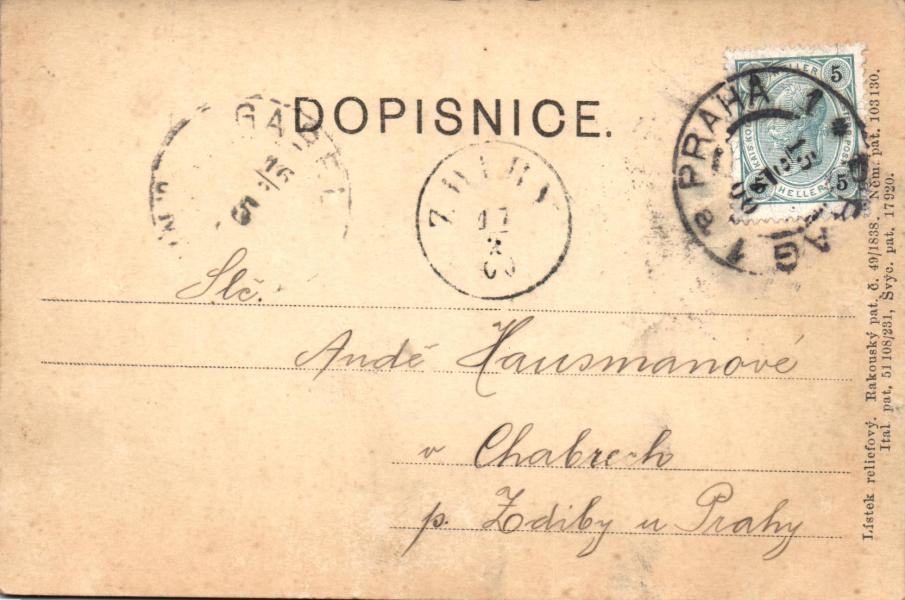 DOPISNICE.
PRAHA 1
PRAG 1
5 HELLER 5
5 HELLER 5
ZDIBY
17
X
00
Slč.
Andě Hausmanové
v Chabrech
p. Zdiby u Prahy
Lístek reliefový. Rakouský pat. č. 49/1838. Něm. pat. 103130.
Ital. pat. 51108/231, Švýc. pat. 17920.